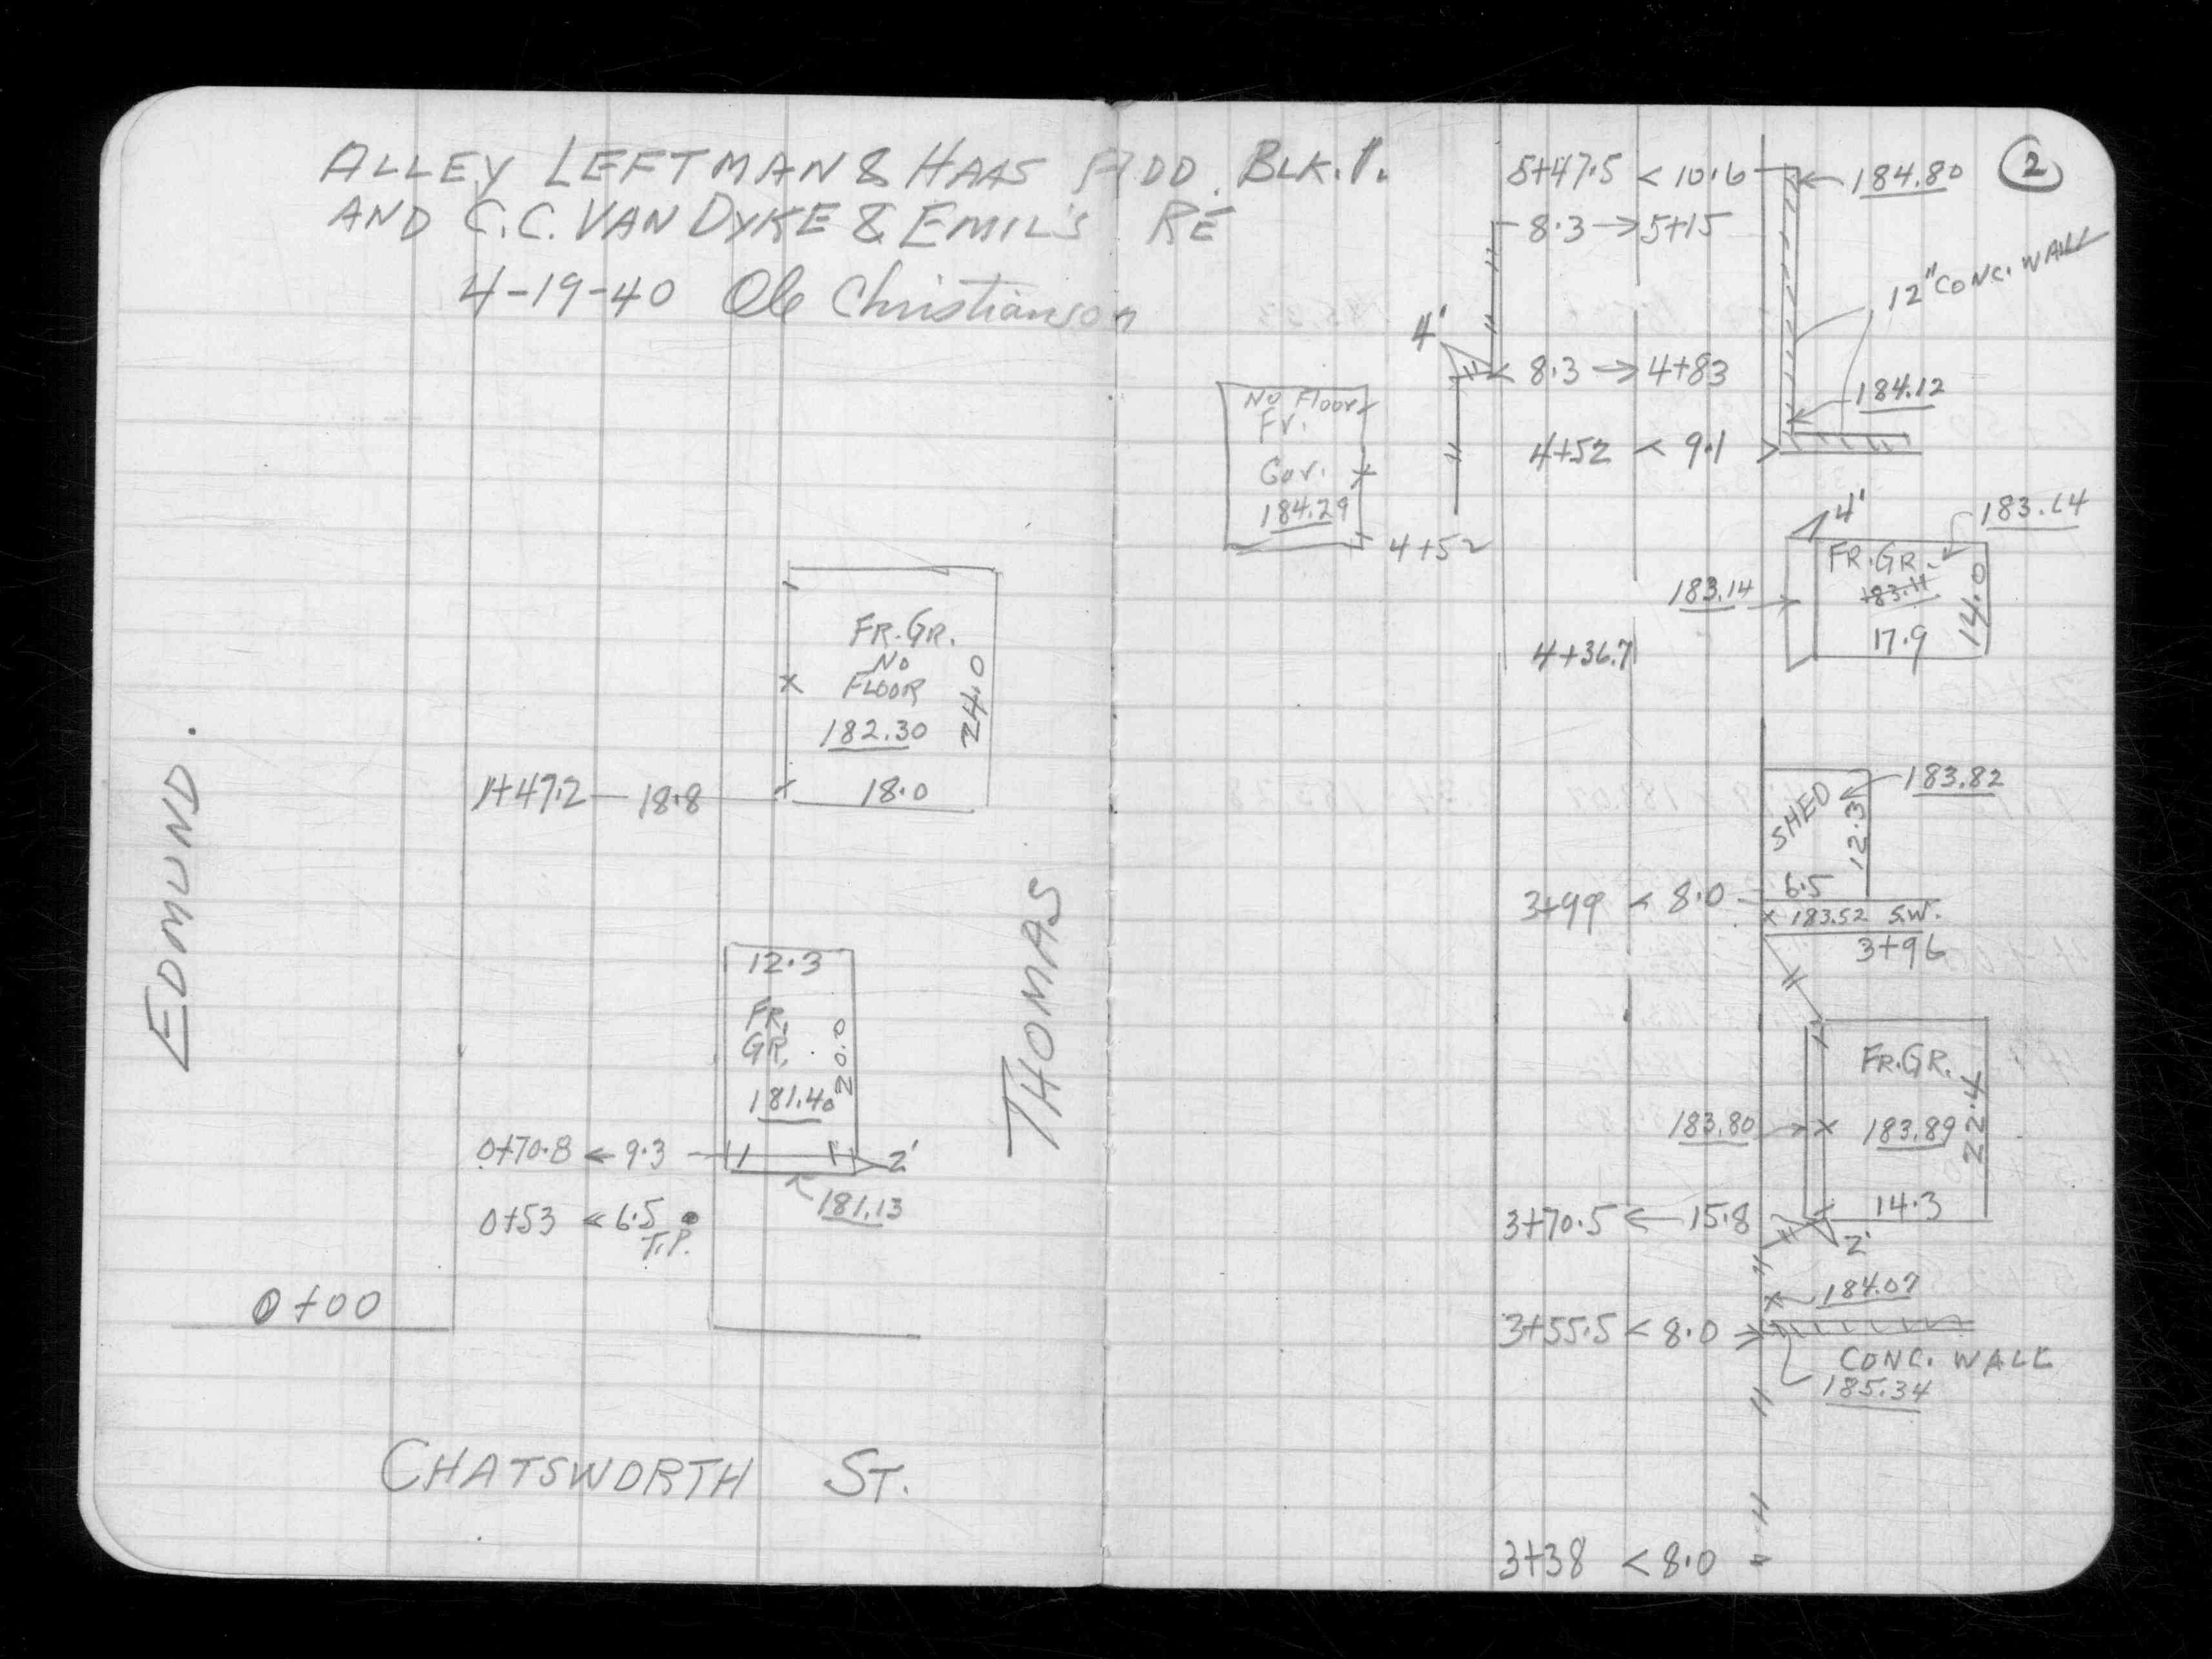 ALLEY LEFTMAN & HAAS ADD. BLK. 1.
AND C.C. VAN DYKE & EMIL'S RE
4-19-40 Ole Christianson
FR. GR.
NO
FLOOR
182.30
24.0
1+47.2 — 18.8
18.0
EDMUND.
THOMAS
12.3
FR.
GR.
20.0
181.40
0+70.8 < 9.3
2'
181.13
0+53 < 6.5
T.P.
0+00
CHATSWORTH ST.
2
5+47.5 < 10.6
184.80
8.3 → 5+15
12" CONC. WALL
4'
8.3 → 4+83
184.12
No Floor
Fr.
Gar.
184.29
4+52 < 9.1
4+52
4'
183.14
FR. GR.
183.14
183.11
14.0
17.9
4+36.7
183.82
SHED
12.3
6.5
3+99 < 8.0
183.52 S.W.
3+96
FR. GR.
183.80
183.89
22.4
14.3
3+70.5 ← 15.8
2'
184.07
3+55.5 < 8.0
CONC. WALL
185.34
3+38 < 8.0